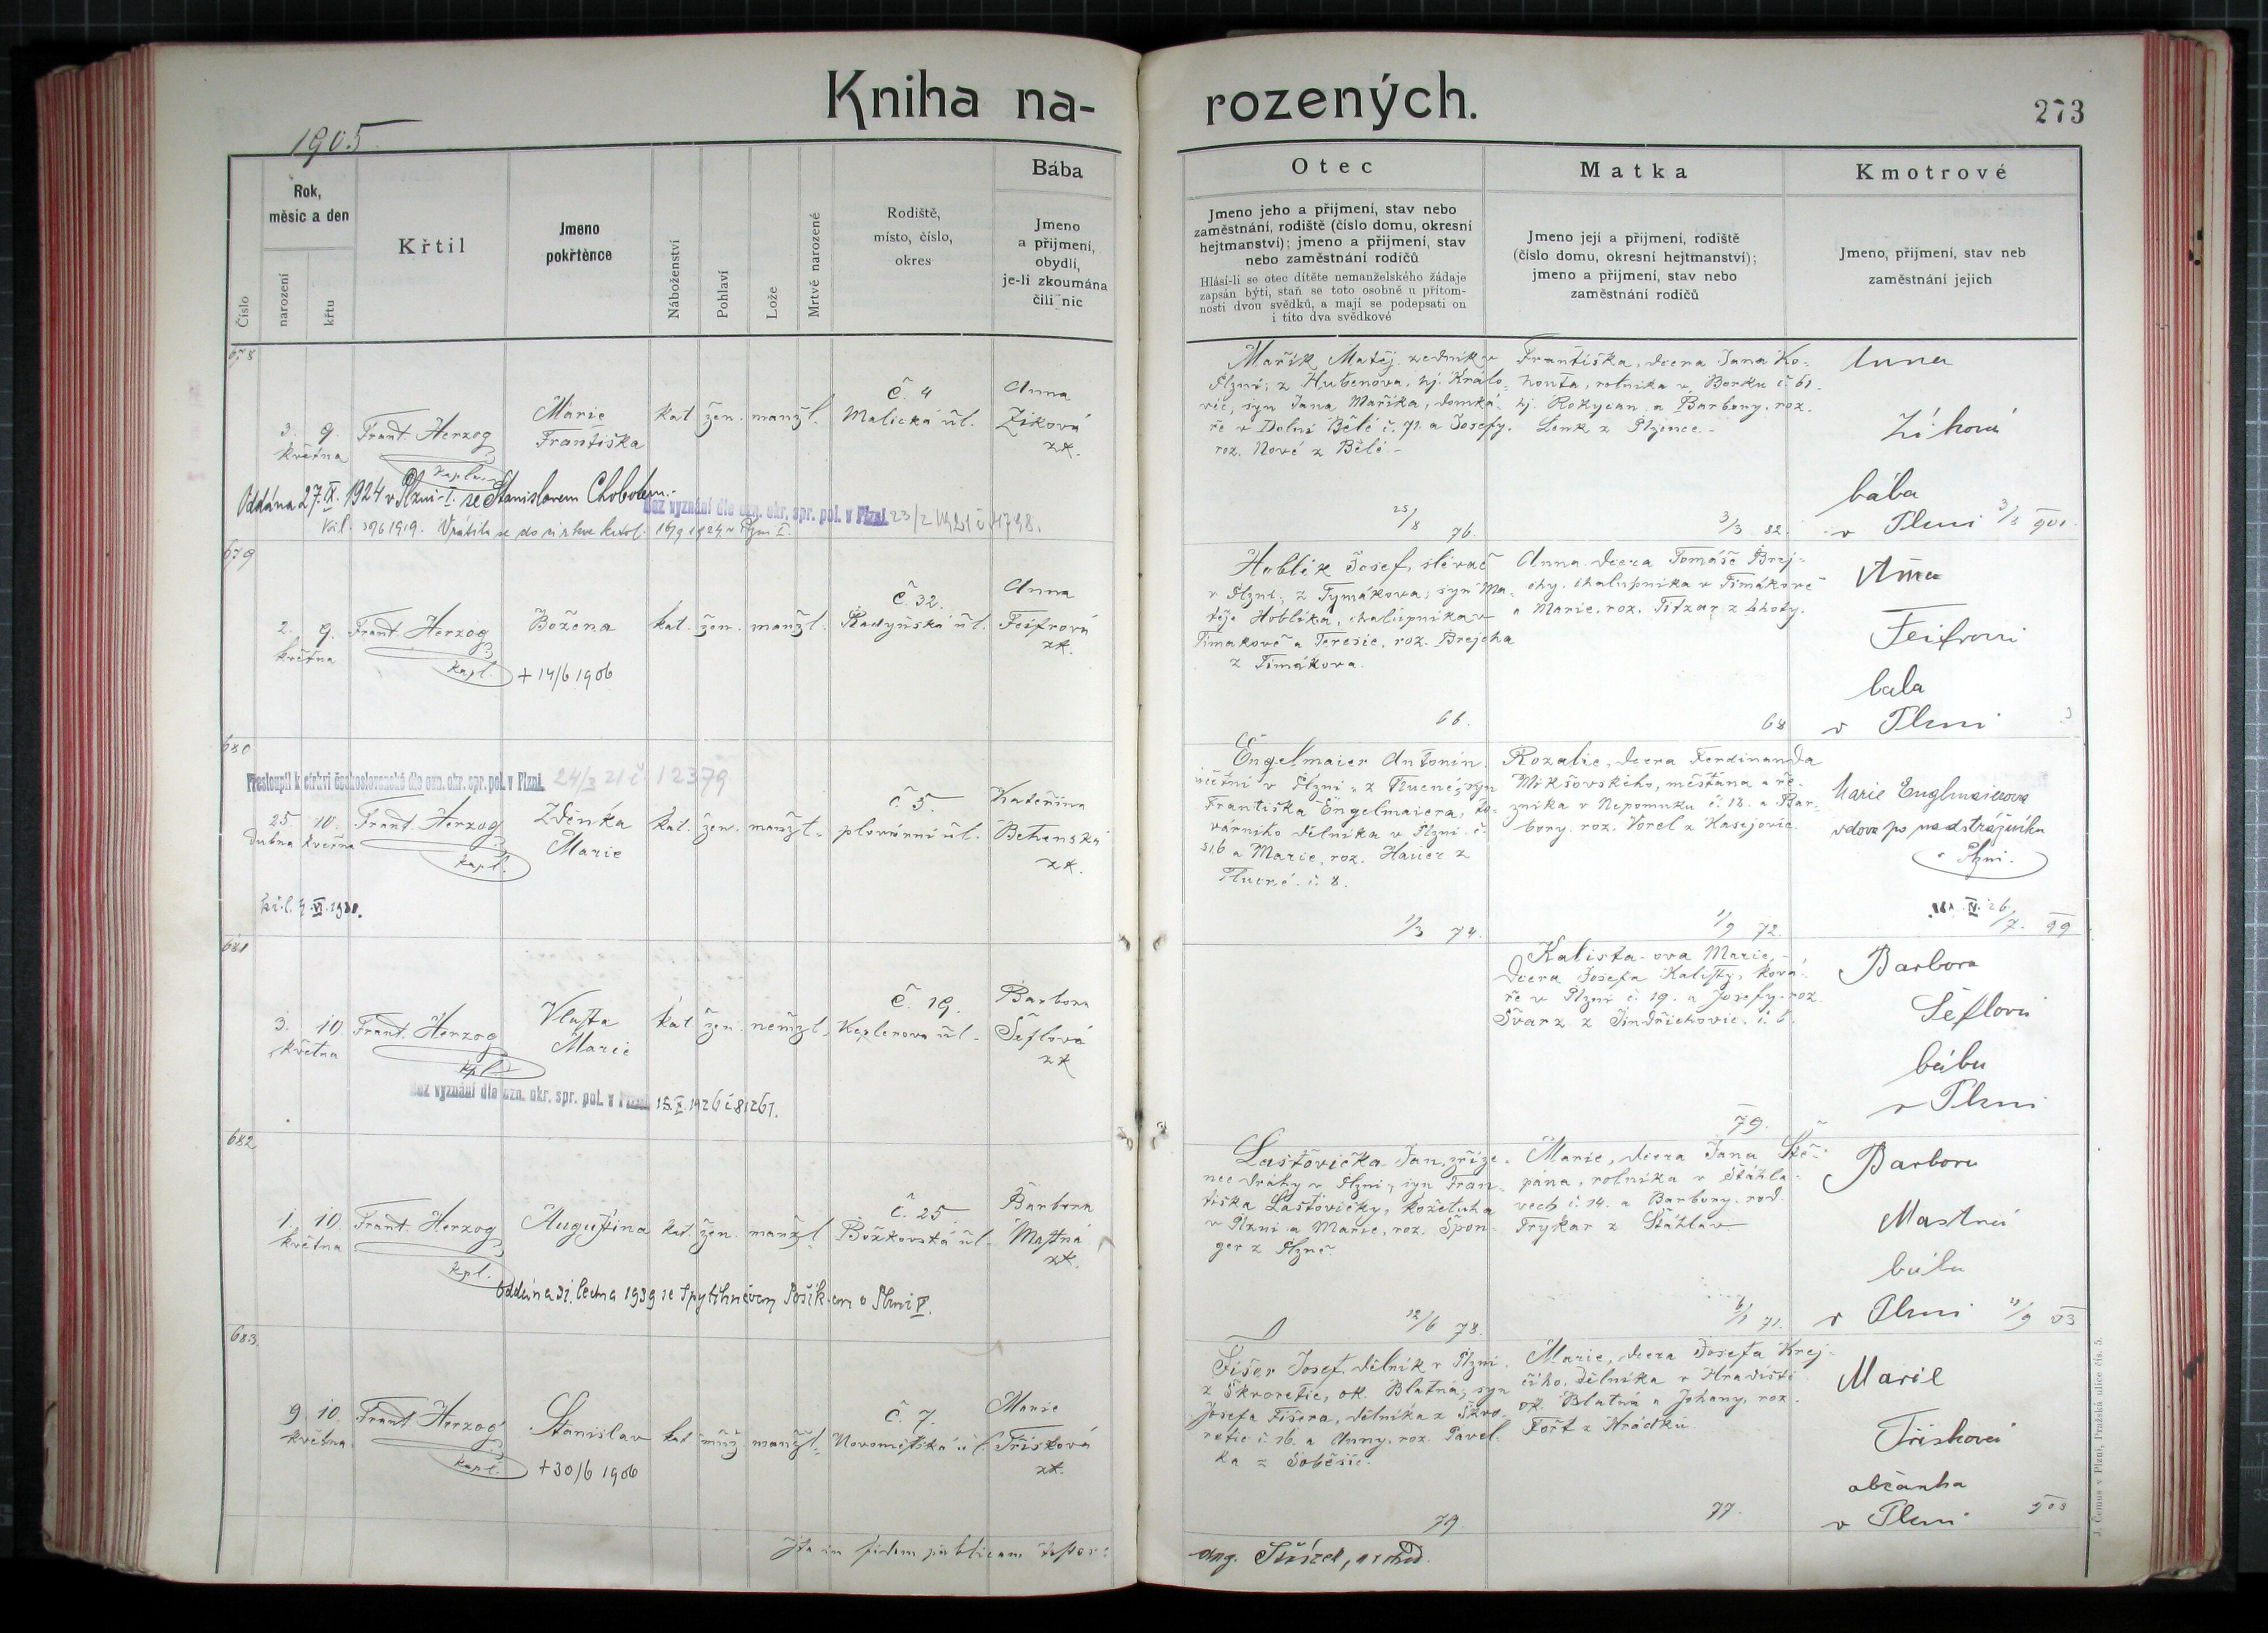 Kniha na-
rozených.
273
1905
Číslo
Rok,
měsíc a den
narození
křtu
Křtil
Jmeno
pokřtěnce
Náboženství
Pohlaví
Lože
Mrtvě narozené
Rodiště,
místo, číslo,
okres
Bába
Jmeno
a přijmení,
obydlí,
je-li zkoumána
čili nic
Otec
Jmeno jeho a přijmení, stav nebo
zaměstnání, rodiště (číslo domu, okresní
hejtmanství); jmeno a přijmení, stav
nebo zaměstnání rodičů
Hlásí-li se otec dítěte nemanželského žádaje
zapsán býti, staň se toto osobně u přítom-
nosti dvou svědků, a mají se podepsati on
i tito dva svědkové
Matka
Jmeno její a přijmení, rodiště
(číslo domu, okresní hejtmanství);
jmeno a přijmení, stav nebo
zaměstnání rodičů
Kmotrové
Jmeno, přijmení, stav neb
zaměstnání jejich
678
3. 9.
května
Frant. Herzog
kapl.
Marie
Františka
kat. žen. manžl.
č. 4
Malická ul.
Anna
Zíková
zk.
Oddána 27.IX.1924 v Plzni-I. se Stanislavem Chobotem.
Bez vyznání dle ozn. okr. spr. pol. v Plzni. 23/2 1921 č.
Vrátila se do církve katol.
Mařík Matěj, zedník v
Plzni, z Hubenova, hj. Králo-
vic, syn Jana Maříka, domká-
ře v Dolní Bělé č. 71. a Josefy,
roz. Nové z Bělé.
25/8 76.
Františka, dcera Jana Ko-
houta, rolníka v Borku č. 61.
hj. Rokycan a Barbory, roz.
Lenk z Plzence.
3/3 82.
Anna
Zíková
bába
v Plzni 3/3 901.
679
2. 9.
května
Frant. Herzog
kapl.
Božena
+ 14/6 1906
kat. žen. manžl.
č. 32.
Radyňská ul.
Anna
Feifrová
zk.
Hoblík Josef, slévač
v Plzni, z Tymákova; syn Ma-
těje Hoblíka, chalupníka v
Timákově a Teresie, roz. Brejcha
z Timákova.
66.
Anna dcera Tomáše Brej-
chy, chalupníka v Timákově
a Marie, roz. z Lhoty.
68
Anna
Feifrová
bába
v Plzni
680
Přestoupil k církvi československé dle ozn. okr. spr. pol. v Plzni. 24/3 21 č. 12379
25. 10.
dubna května
Frant. Herzog
kapl.
Zdeňka
Marie
kat. žen. manžl.
č. 5.
plovární ul.
Kateřina
Betanská
zk.
Engelmaier Antonín,
účetní v Plzni z Tlucné; syn
Františka Engelmaiera, to-
várního dělníka v Plzni č.
516 a Marie, roz. Hauer z
Tlucné č. 8.
1/3 74.
Rozalie, dcera Ferdinanda
Mikšovského, měšťana a ře-
zníka v Nepomuku č. 18. a Bar-
bory, roz. Vorel z Kasejovic.
1/9 72.
Marie Englmaierova
vdova po nadstrážníku
v Plzni.
99
681
3. 10.
května
Frant. Herzog
kpl.
Vlasta
Marie
kat. žen. nemžl.
č. 19.
Keplerova ul.
Barbora
Šeflová
zk.
Bez vyznání dle ozn. okr. spr. pol. v Plzni 1926 č. 81261.
Kalista-ova Marie,
dcera Josefa Kalisty, ková-
ře v Plzni č. 19. a Josefy, roz.
Švarz z Jindřichovic. č. 6.
79.
Barbora
Šéflová
bába
v Plzni
682
1. 10.
května
Frant. Herzog
kpl.
Augustina
kat. žen. manžl.
č. 25
Božkovská ul.
Barbora
Mastná
zk.
Oddána 31. ledna 1939 se Spytihněvem Pošíkem v Plzni V.
Laštovička Jan, zříze-
nec dráhy v Plzni, syn Fran-
tiška Laštovičky, koželuha
v Plzni a Marie, roz. Špon-
ger z Plzně.
12/6 73.
Marie, dcera Jana Stě-
pána, rolníka v Štáhla-
vech č. 14. a Barbory, rod.
Trykar z Štáhlav
6/1 71.
Barbora
Mastná
bába
v Plzni 11/9 03
683.
9. 10.
května
Frant. Herzog
kapl.
Stanislav
+ 30/6 1906
kat. muž. manžl.
č. 7.
Novoměstská ul.
Marie
Třísková
zk.
Fišer Josef, dělník v Plzni
z Škvoretic, ok. Blatná; syn
Josefa Fišera, dělníka z Škvo-
retic č. 16. a Anny, roz. Pavel-
ka z Soběšic.
79.
Marie, dcera Josefa Krej-
čího, dělníka v Hradišti
ok. Blatná a Johany, roz.
Fořt z Hrádku.
77.
Marie
Třísková
občanka
v Plzni 903
Ita in fidem publicam
J. Čemus v Plzni, Pražská ulice čís. 5.